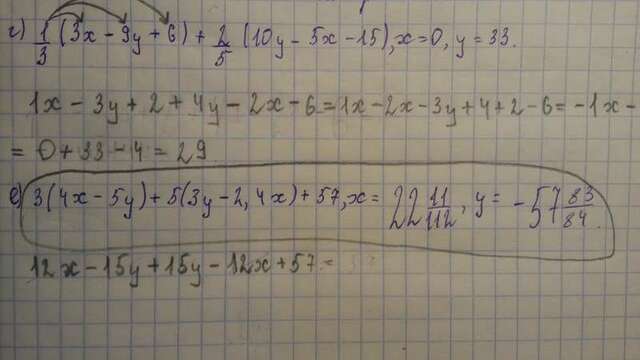 г) 1/3 (3x - 9y + 6) + 2/5 (10y - 5x - 15), x = 0, y = 33.
1x - 3y + 2 + 4y - 2x - 6 = 1x - 2x - 3y + 4 + 2 - 6 = -1x -
= 0 + 33 - 4 = 29
е) 3(4x - 5y) + 5(3y - 2,4x) + 57, x = 22 11/112, y = -57 83/84.
12x - 15y + 15y - 12x + 57 =